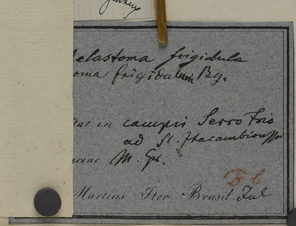 elastoma frigidula
oma frigidulum Bg.
at in campis Serro Frio
ad St. Itacambirussu
nciae M. Ger.
Fl
Martius Iter Brasil. Jul